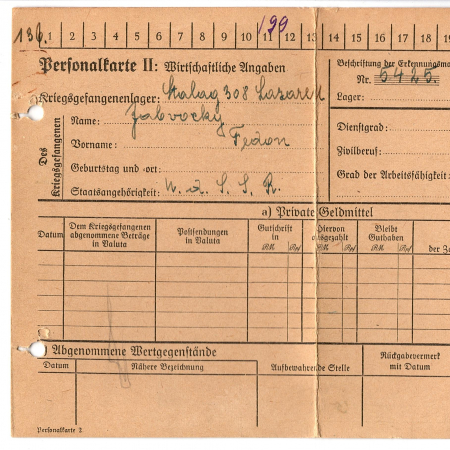 136. 1 2 3 4 5 6 7 8 9 10 11 12 13 14 15 16 17 18 19
Personalkarte II: Wirtschaftliche Angaben
Beschriftung der Erkennungsma
Nr. 6425
Kriegsgefangenenlager: Stalag 308 Lazarett
Lager:
Des Kriegsgefangenen
Name: Jabvocky
Vorname: Fedon
Dienstgrad:
Zivilberuf:
Geburtstag und -ort:
Grad der Arbeitsfähigkeit:
Staatsangehörigkeit: U. d. S. S. R.
a) Private Geldmittel
Datum
Dem Kriegsgefangenen
abgenommene Beträge
in Valuta
Postsendungen
in Valuta
Gutschrift
in
RM. Rpf
Hiervon
ausgezahlt
RM. Rpf
Bleibt
Guthaben
RM. Rpf
der Za
) Abgenommene Wertgegenstände
Datum
Nähere Bezeichnung
Aufbewahrende Stelle
Rückgabevermerk
mit Datum
Personalkarte 2